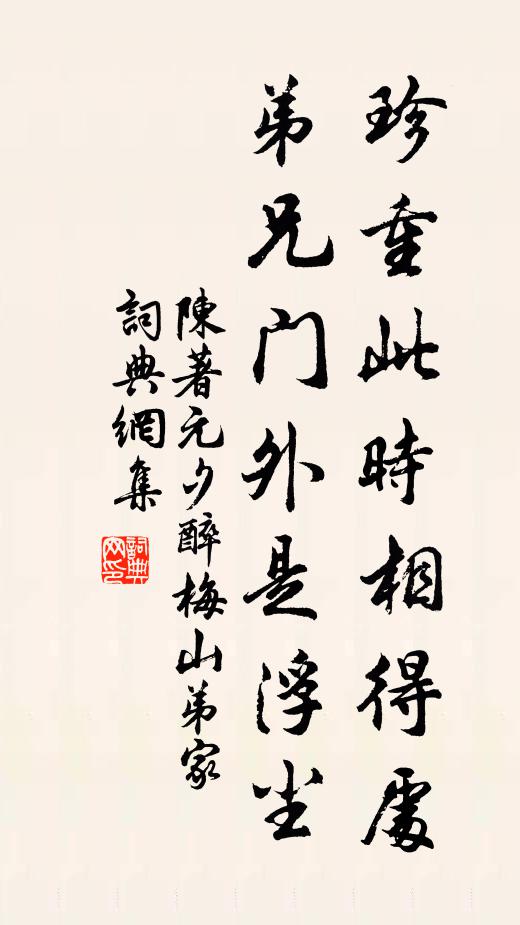 珍重此時相得處
弟兄門外是浮尘
陳著元夕醉梅山弟家
詞典網集
詞典
网印